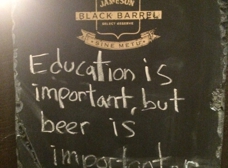 JAMESON
BLACK BARREL
SELECT RESERVE
SINE METU
Education is
important, but
beer is
importanter